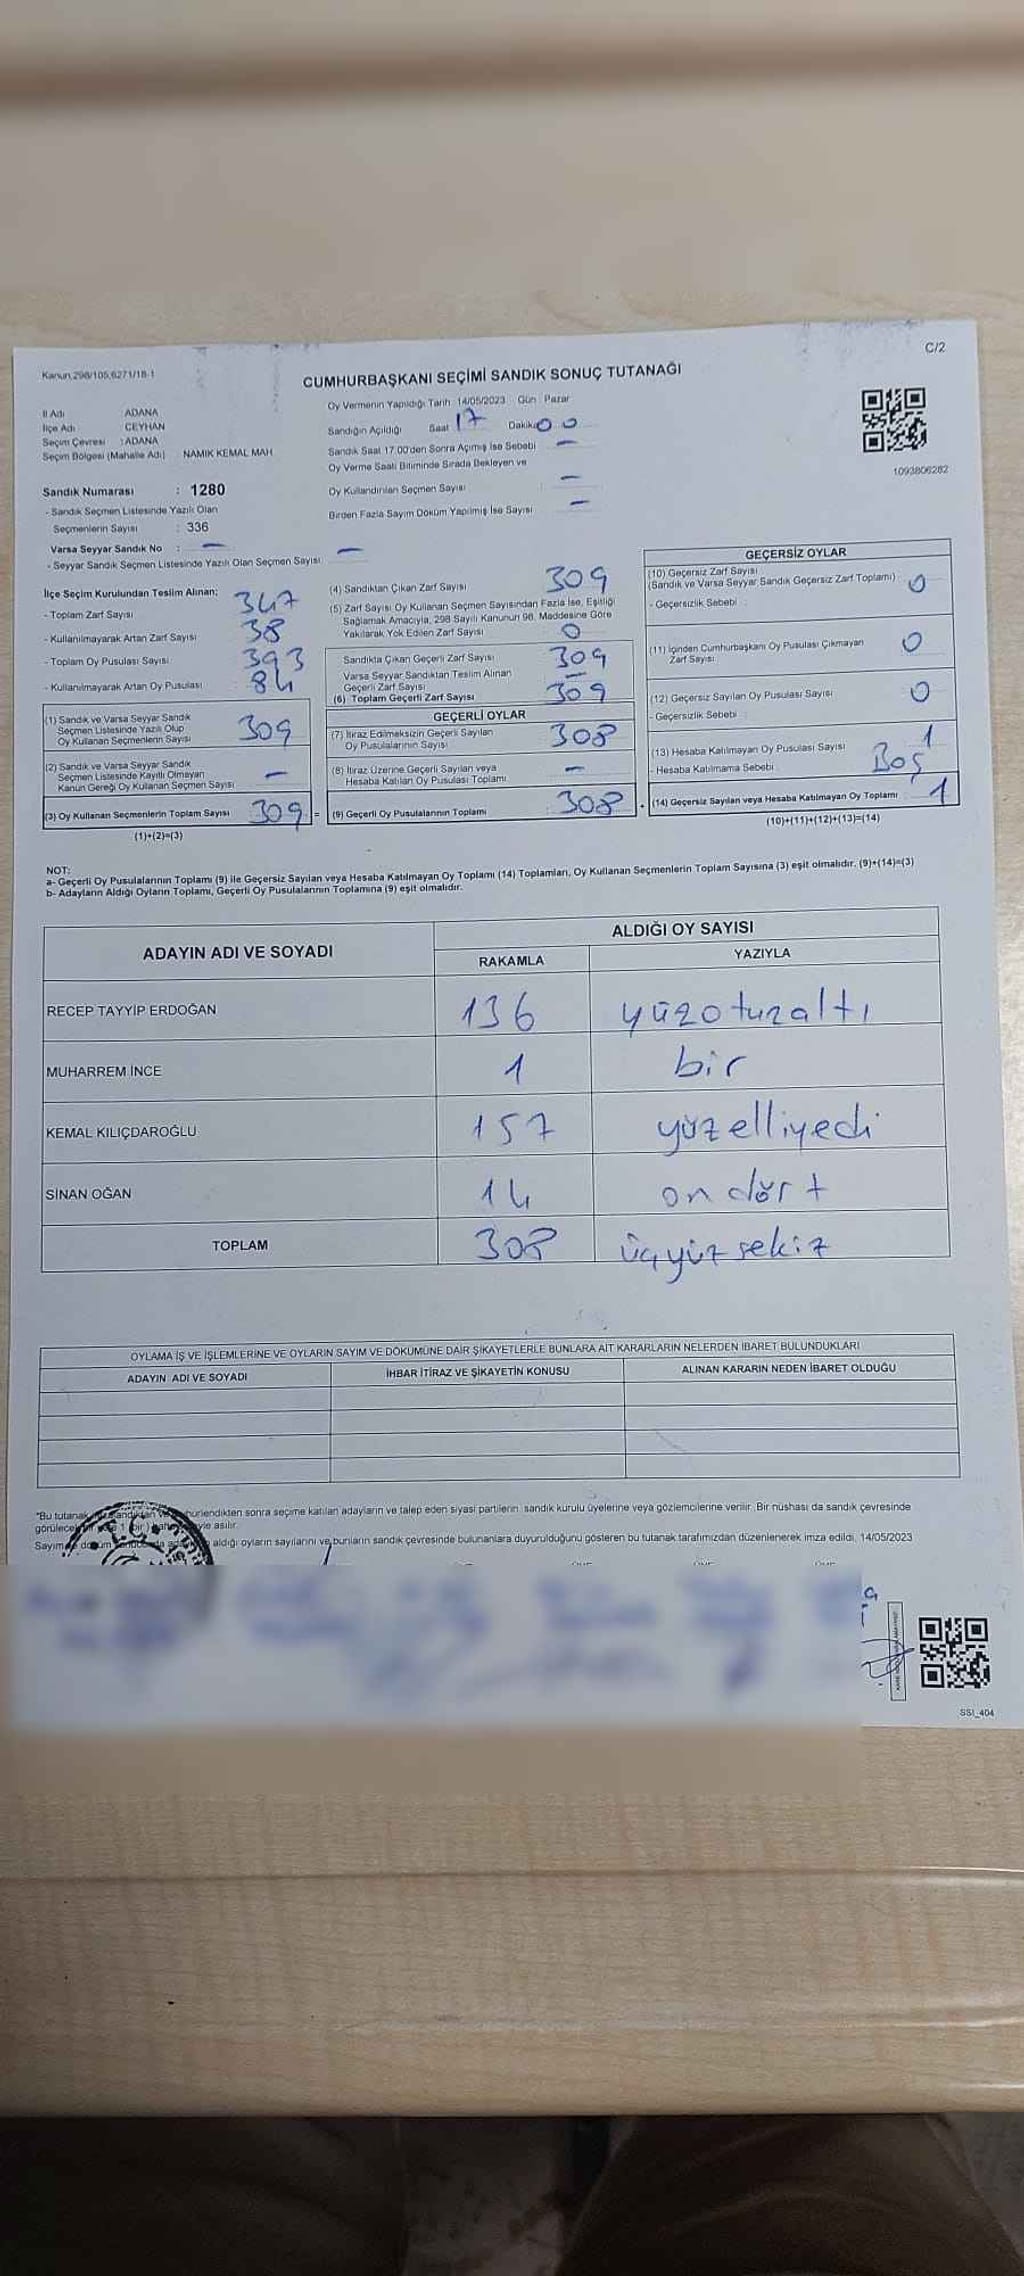 C/2
Kanun,298/105,6271/18-1
CUMHURBAŞKANI SEÇİMİ SANDIK SONUÇ TUTANAĞI
İl Adı ADANA
İlçe Adı CEYHAN
Seçim Çevresi : ADANA
Seçim Bölgesi (Mahalle Adı) NAMIK KEMAL MAH
Oy Vermenin Yapıldığı Tarih 14/05/2023 Gün Pazar
Sandığın Açıldığı Saat 17 Dakika 00
Sandık Saat 17.00'den Sonra Açımış İse Sebebi —
Oy Verme Saati Bitiminde Sırada Bekleyen ve
Oy Kullandırılan Seçmen Sayısı —
Birden Fazla Sayım Döküm Yapılmış İse Sayısı —
1093806282
Sandık Numarası : 1280
- Sandık Seçmen Listesinde Yazılı Olan
Seçmenlerin Sayısı : 336
Varsa Seyyar Sandık No : —
- Seyyar Sandık Seçmen Listesinde Yazılı Olan Seçmen Sayısı —
İlçe Seçim Kurulundan Teslim Alınan:
- Toplam Zarf Sayısı 347
- Kullanılmayarak Artan Zarf Sayısı 38
- Toplam Oy Pusulası Sayısı 393
- Kullanılmayarak Artan Oy Pusulası 84
(1) Sandık ve Varsa Seyyar Sandık
Seçmen Listesinde Yazılı Olup
Oy Kullanan Seçmenlerin Sayısı 309
(2) Sandık ve Varsa Seyyar Sandık
Seçmen Listesinde Kayıtlı Olmayan
Kanun Gereği Oy Kullanan Seçmen Sayısı —
(3) Oy Kullanan Seçmenlerin Toplam Sayısı 309 =
(1)+(2)=(3)
(4) Sandıktan Çıkan Zarf Sayısı 309
(5) Zarf Sayısı Oy Kullanan Seçmen Sayısından Fazla İse, Eşitliği
Sağlamak Amacıyla, 298 Sayılı Kanunun 98. Maddesine Göre
Yakılarak Yok Edilen Zarf Sayısı 0
Sandıkta Çıkan Geçerli Zarf Sayısı 309
Varsa Seyyar Sandıktan Teslim Alınan
Geçerli Zarf Sayısı —
(6) Toplam Geçerli Zarf Sayısı 309
GEÇERLİ OYLAR
(7) İtiraz Edilmeksizin Geçerli Sayılan
Oy Pusulalarının Sayısı 308
(8) İtiraz Üzerine Geçerli Sayılan veya
Hesaba Katılan Oy Pusulası Toplamı —
(9) Geçerli Oy Pusulalarının Toplamı 308
GEÇERSİZ OYLAR
(10) Geçersiz Zarf Sayısı
(Sandık ve Varsa Seyyar Sandık Geçersiz Zarf Toplamı) 0
- Geçersizlik Sebebi :
(11) İçinden Cumhurbaşkanı Oy Pusulası Çıkmayan
Zarf Sayısı 0
(12) Geçersiz Sayılan Oy Pusulası Sayısı 0
- Geçersizlik Sebebi :
(13) Hesaba Katılmayan Oy Pusulası Sayısı 1
- Hesaba Katılmama Sebebi Boş
(14) Geçersiz Sayılan veya Hesaba Katılmayan Oy Toplamı 1
(10)+(11)+(12)+(13)=(14)
NOT:
a- Geçerli Oy Pusulalarının Toplamı (9) ile Geçersiz Sayılan veya Hesaba Katılmayan Oy Toplamı (14) Toplamları, Oy Kullanan Seçmenlerin Toplam Sayısına (3) eşit olmalıdır. (9)+(14)=(3)
b- Adayların Aldığı Oyların Toplamı, Geçerli Oy Pusulalarının Toplamına (9) eşit olmalıdır.
ADAYIN ADI VE SOYADI ALDIĞI OY SAYISI
RAKAMLA YAZIYLA
RECEP TAYYİP ERDOĞAN 136 yüzotuzaltı
MUHARREM İNCE 1 bir
KEMAL KILIÇDAROĞLU 157 yüzelliyedi
SİNAN OĞAN 14 on dört
TOPLAM 308 üçyüz sekiz
OYLAMA İŞ VE İŞLEMLERİNE VE OYLARIN SAYIM VE DÖKÜMÜNE DAİR ŞİKAYETLERLE BUNLARA AİT KARARLARIN NELERDEN İBARET BULUNDUKLARI
ADAYIN ADI VE SOYADI İHBAR İTİRAZ VE ŞİKAYETİN KONUSU ALINAN KARARIN NEDEN İBARET OLDUĞU
"Bu tutanak sonra seçime katılan adayların ve talep eden siyasi partilerin sandık kurulu üyelerine veya gözlemcilerine verilir. Bir nüshası da sandık çevresinde
asılır.
aldığı oyların sayılarını ve bunların sandık çevresinde bulunanlara duyurulduğunu gösteren bu tutanak tarafımızdan düzenlenerek imza edildi. 14/05/2023
SSI_404